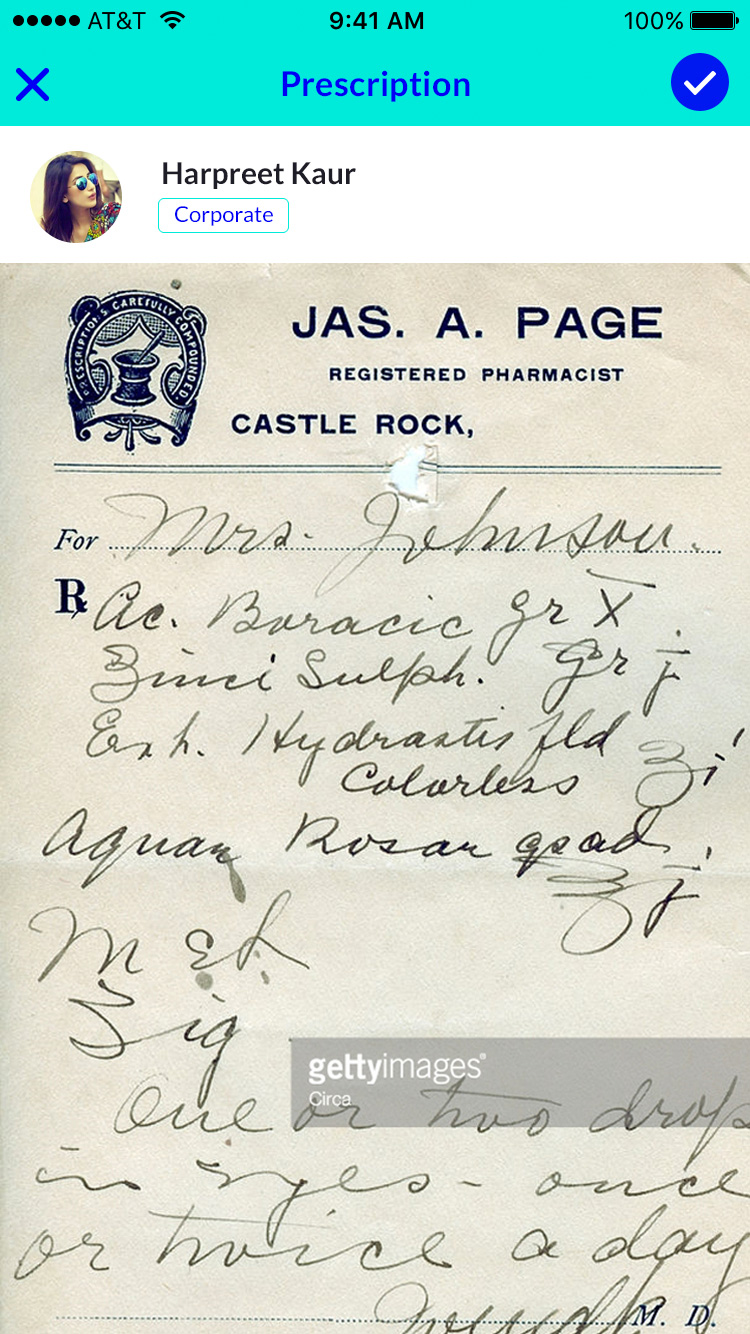 AT&T 9:41 AM 100%
Prescription
Harpreet Kaur
Corporate
PRESCRIPTIONS CAREFULLY COMPOUNDED
JAS. A. PAGE
REGISTERED PHARMACIST
CASTLE ROCK,
For Mrs. Johnson.
R Ac. Boracic gr X
Zinci Sulph. gr j
Ext. Hydrastis fld
Colorless ʒi
Aquae Rosae qsad.
℥j
M Et
Sig
gettyimages®
Circa
One or two drops
in eyes - once
or twice a day
M. D.